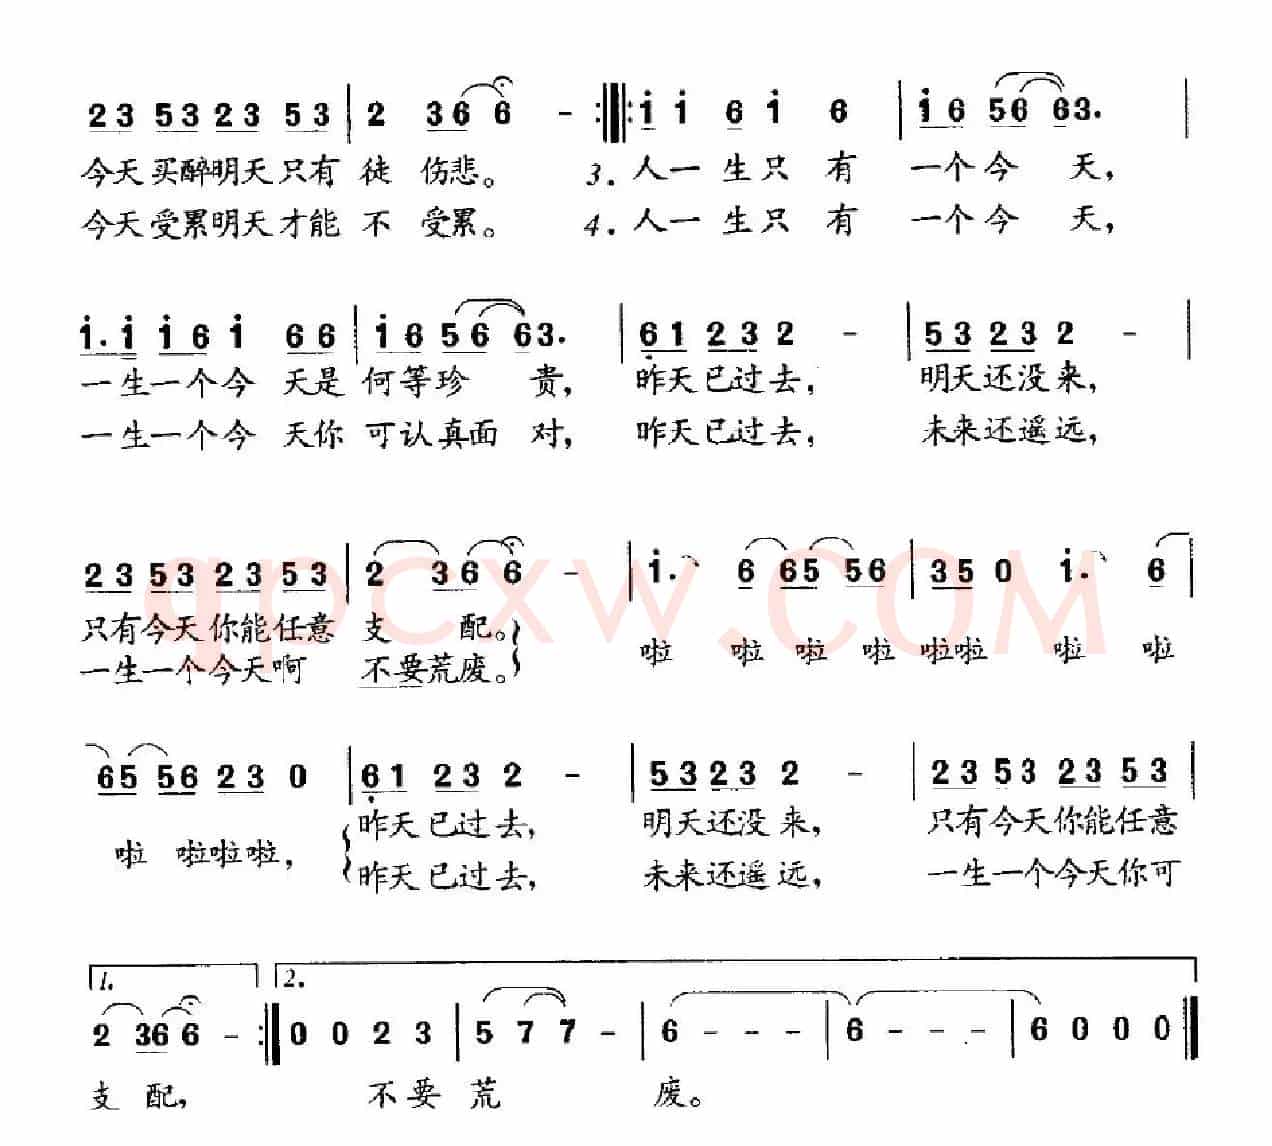 23 53 23 53 | 2 36 6 - :||: i i 6 i 6 | i6 56 63. |
今天买醉明天只有 徒 伤悲。 3. 人一 生只 有 一个今 天,
今天受累明天才能 不 受累。 4. 人一 生只 有 一个今 天,
i.i i6 i 66 | i6 56 63. | 61 23 2 - | 53 23 2 - |
一生一个今 天是 何等珍 贵, 昨天已过去, 明天还没来,
一生一个今 天你 可认真面 对, 昨天已过去, 未来还遥远,
23 53 23 53 | 2 36 6 - | i. 6 65 56 | 350 i. 6 |
只有今天你能任意 支 配。
一生一个今天啊 不要荒废。
啦 啦 啦 啦 啦啦 啦 啦
65 56 23 0 | 61 23 2 - | 53 23 2 - | 23 53 23 53 |
啦 啦啦啦,
昨天已过去, 明天还没来, 只有今天你能任意
昨天已过去, 未来还遥远, 一生一个今天你可
1. 2.
2 36 6 - :|| 0 0 2 3 | 5 7 7 - | 6 - - - | 6 - - - | 6 0 0 0 ||
支 配, 不 要 荒 废。
qpcxw.COM